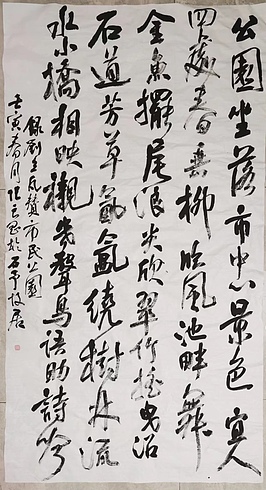 公園坐落市中心景色宜人
四處春垂柳吹風池畔舞
金魚擺尾浪尖欣翠竹搖曳沿
石道芳草氤氳繞樹林流
水橋相映襯幾聲鳥語助詩吟
錄劉玉鳳贊市民公園
壬寅春月 於石 故居